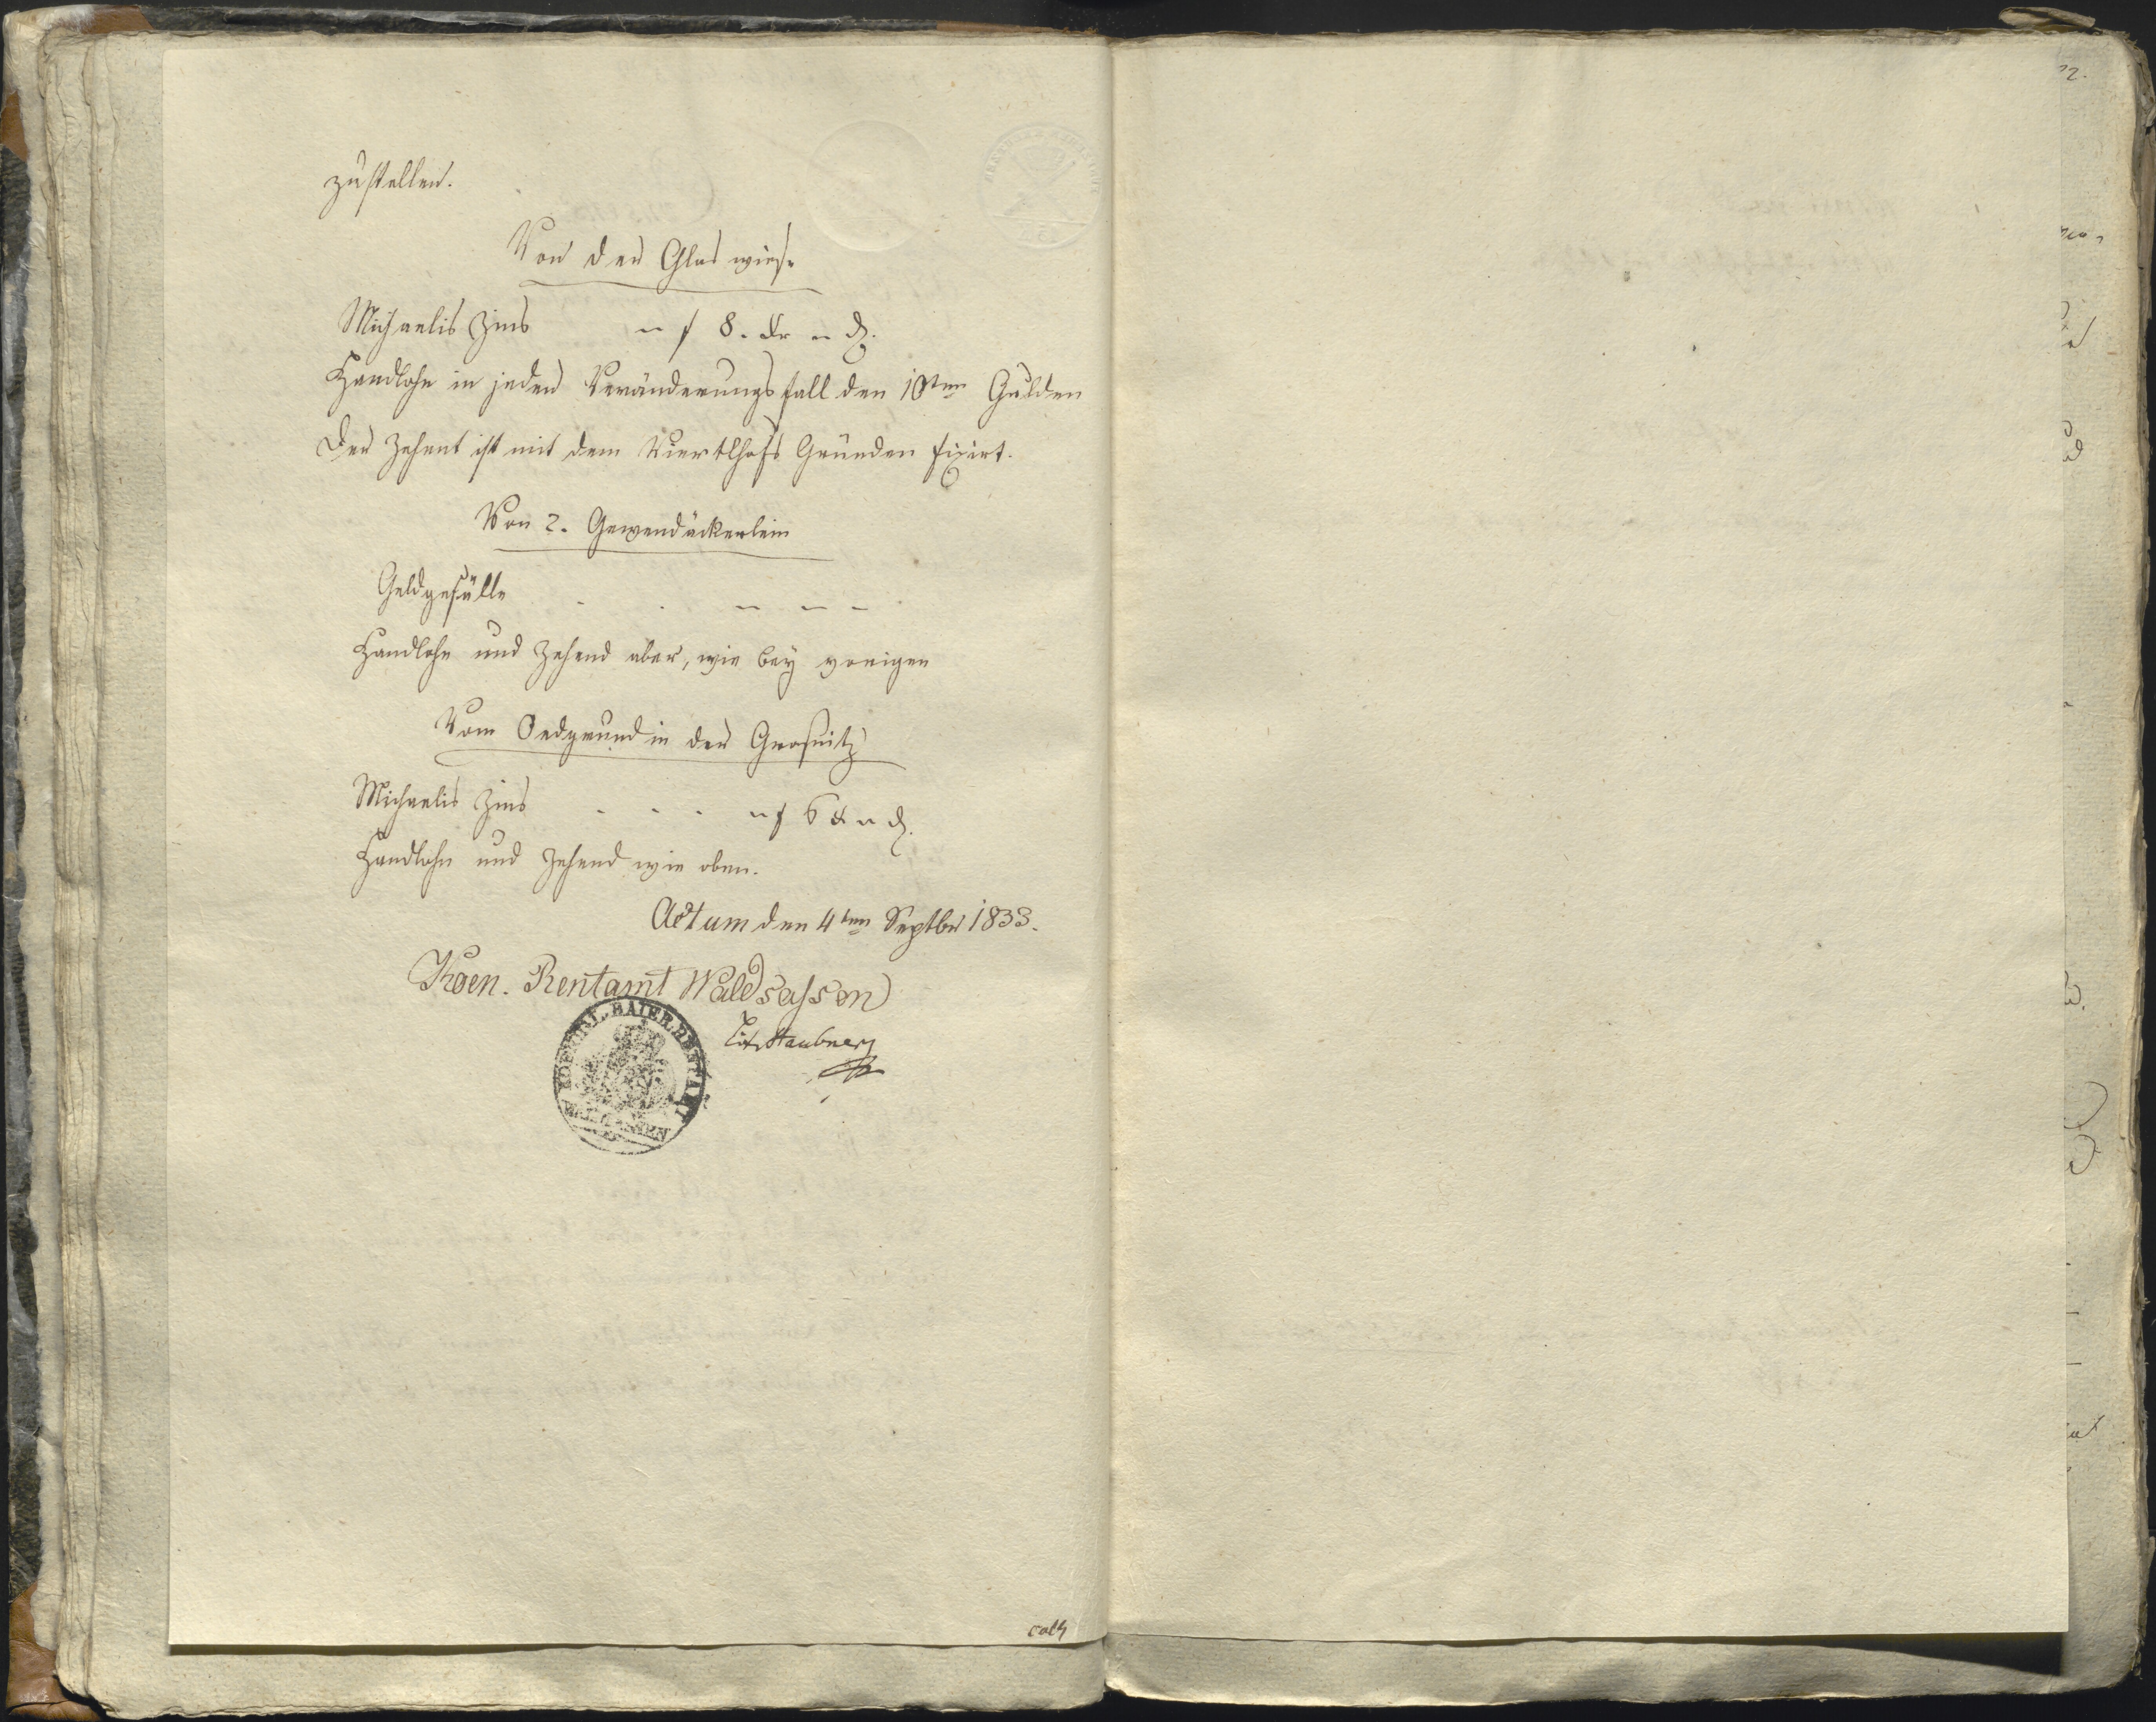 zustellen.
Von der Glas wiese
Michaelis Zins – f 8. Xr – d.
Handlohn in jeden Veränderungsfall den 10ten Gulden
Der Zehent ist mit dem Viertlhofs Gründen fixirt.
Von 2. Gewendäckerlein
Geldgefälle . . – – –
Handlohn und Zehend aber, wie bey vorigen
Vom Oedgrund in der Grosnitz
Michaelis Zins . . . – f 6 X – d.
Handlohn und Zehend wie oben.
Actum den 4ten Septbr 1833.
Koen. Rentamt Waldsassen
KOENIGL. BAIER. RENTAMT
WALDSASSEN